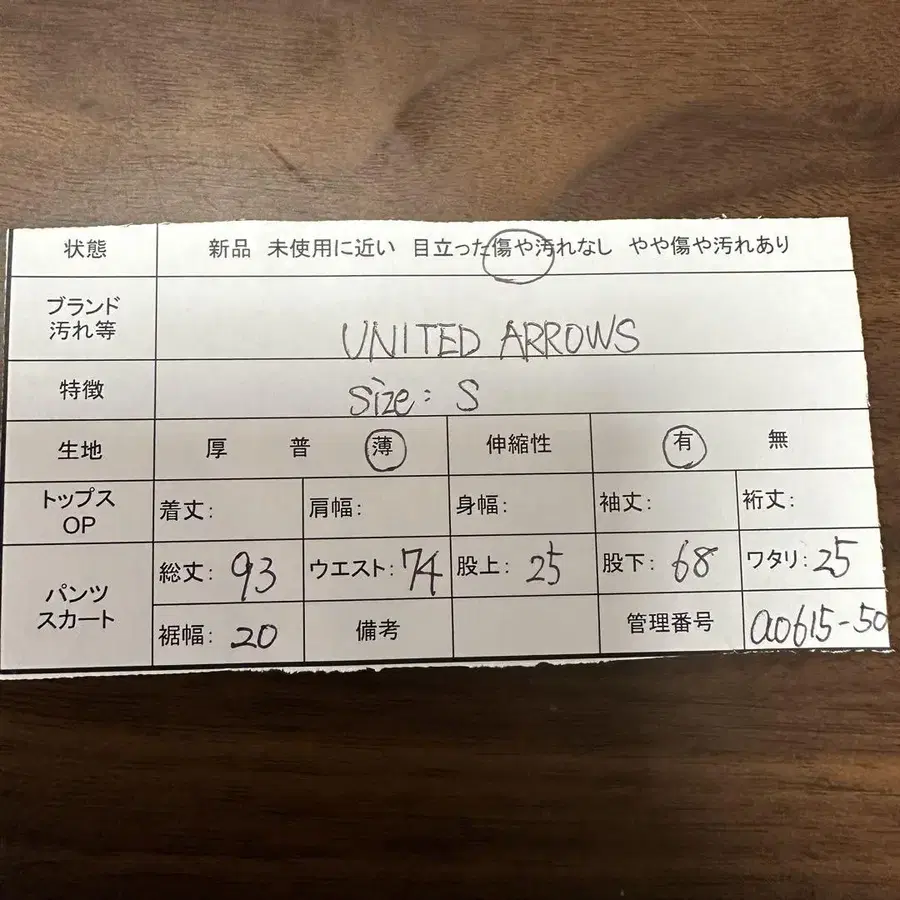 状態 新品 未使用に近い 目立った傷や汚れなし やや傷や汚れあり
ブランド
汚れ等
UNITED ARROWS
特徴 size: S
生地 厚 普 薄 伸縮性 有 無
トップス
OP
着丈: 肩幅: 身幅: 袖丈: 裄丈:
パンツ
スカート
総丈: 93 ウエスト: 74 股上: 25 股下: 68 ワタリ: 25
裾幅: 20 備考 管理番号 a0615-50